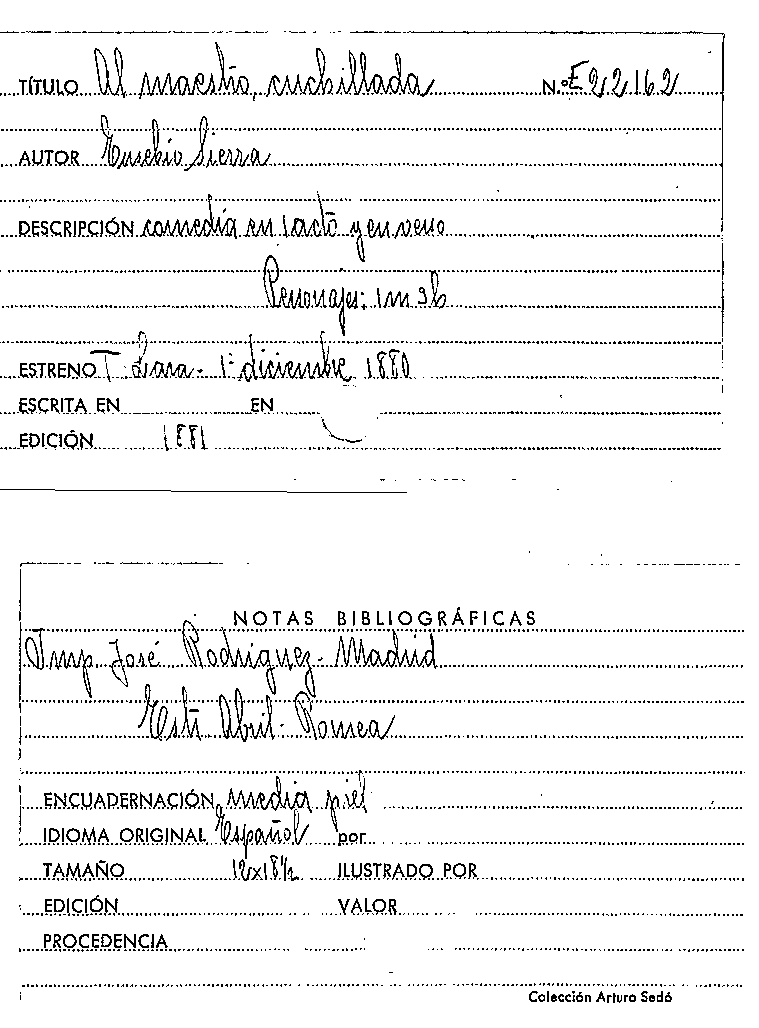 TÍTULO Al maestro, cuchillada N.º E 22162
AUTOR Eusebio Sierra
DESCRIPCIÓN comedia en 1 acto y en verso
Personajes: 1m 3h
ESTRENO T. Lara - 1º diciembre 1880
ESCRITA EN EN
EDICIÓN 1881
NOTAS BIBLIOGRÁFICAS
Imp. José Rodriguez - Madrid
Abril - Romea
ENCUADERNACIÓN media piel
IDIOMA ORIGINAL Español por
TAMAÑO 12x18½ ILUSTRADO POR
EDICIÓN VALOR
PROCEDENCIA
Colección Arturo Sedó